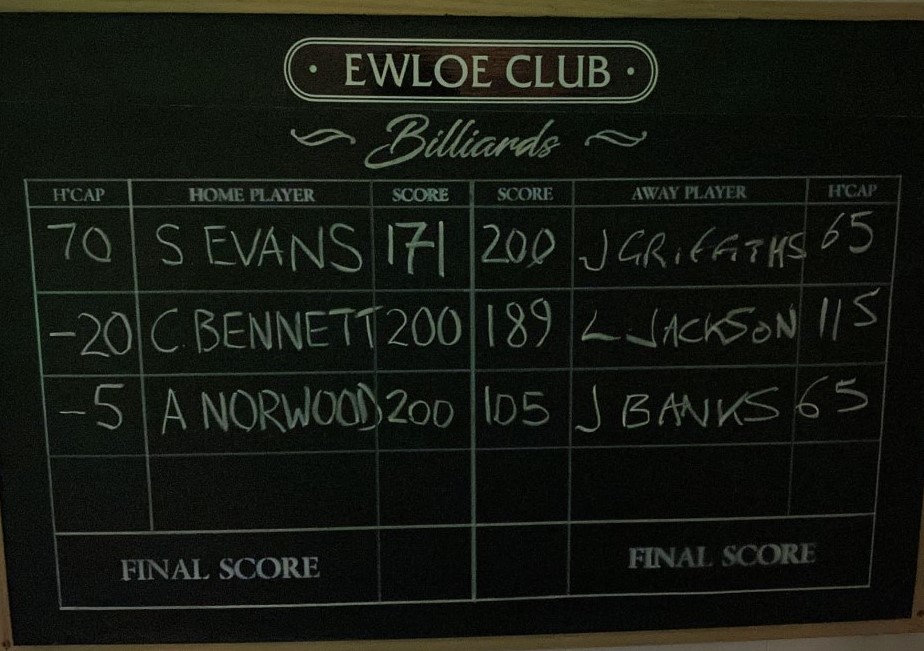 · EWLOE CLUB ·
Billiards
H'CAP HOME PLAYER SCORE SCORE AWAY PLAYER H'CAP
70 S EVANS 171 200 J GRIFFITHS 65
-20 C. BENNETT 200 189 L JACKSON 115
-5 A NORWOOD 200 105 J BANKS 65
FINAL SCORE FINAL SCORE